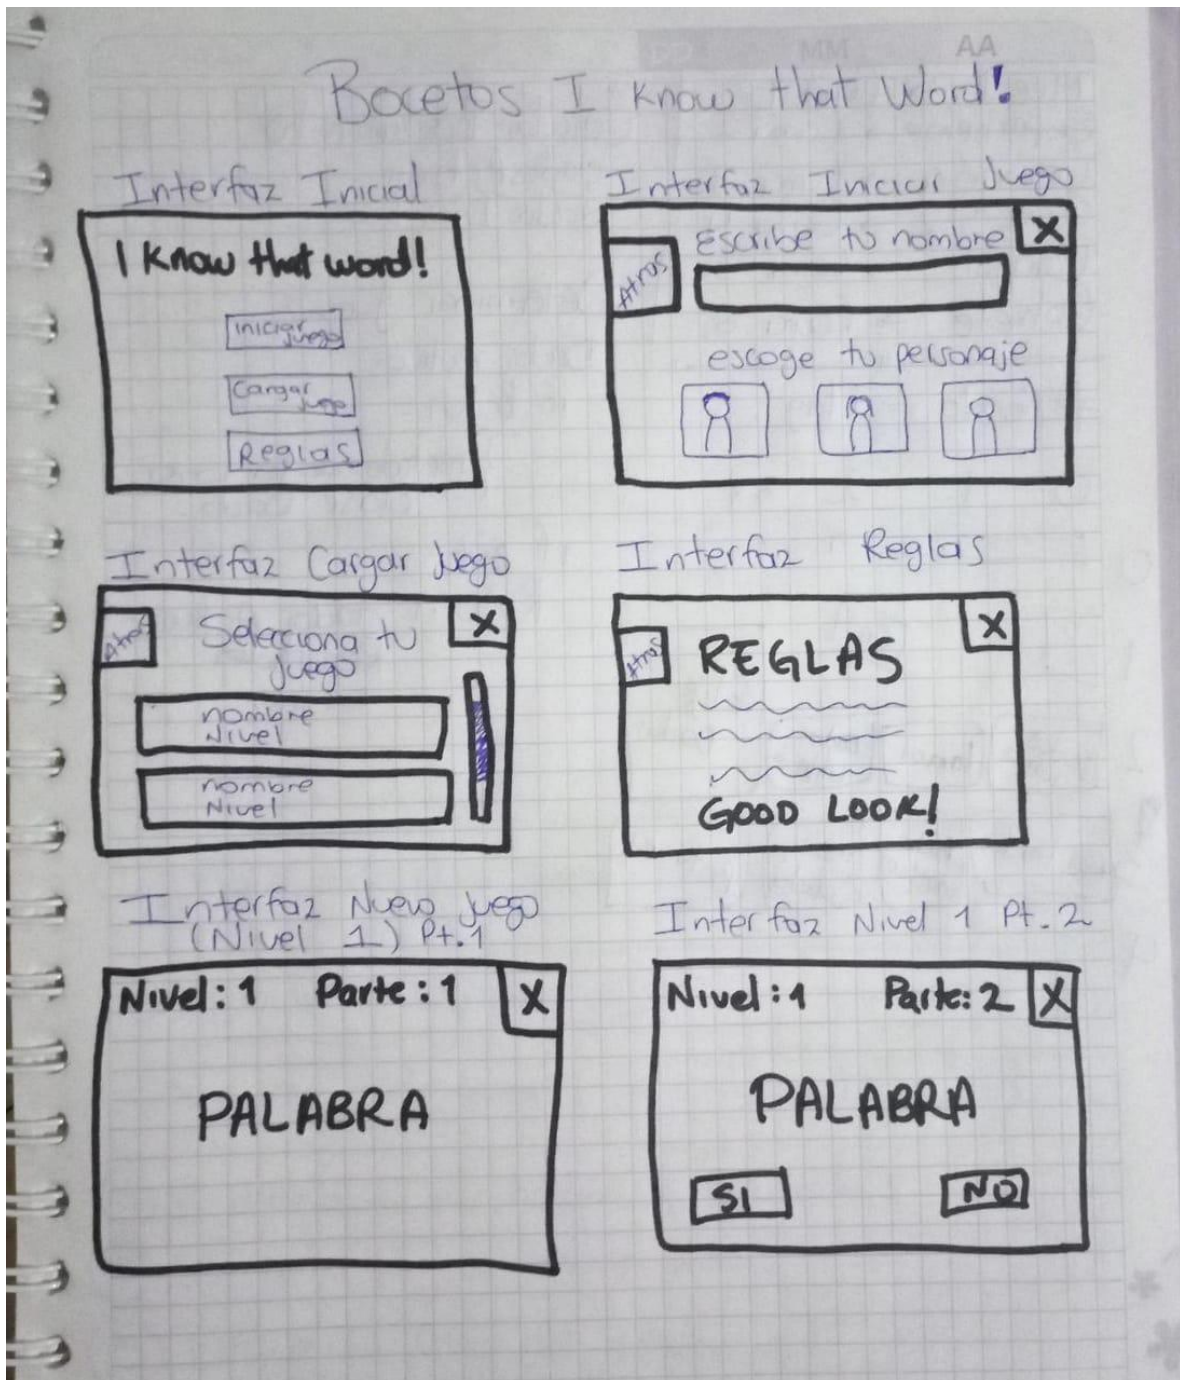 MM AA
Bocetos I know that Word!
Interfaz Inicial
I know that word!
Iniciar
juego
Cargar
juego
Reglas
Interfaz Iniciar Juego
X
Escribe tu nombre
Atras
escoge tu personaje
Interfaz Cargar Juego
Atras
X
Selecciona tu
juego
nombre
Nivel
nombre
Nivel
Interfaz Reglas
X
Atras
REGLAS
GOOD LOOK!
Interfaz Nuevo juego
(Nivel 1) Pt.1
Nivel: 1 Parte: 1 X
PALABRA
Interfaz Nivel 1 Pt. 2
Nivel: 1 Parte: 2 X
PALABRA
SI NO